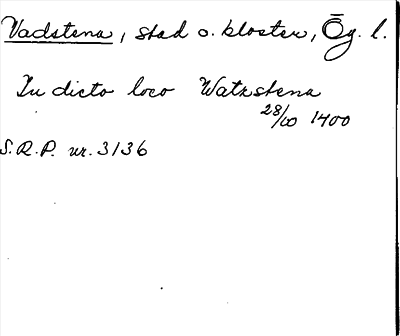 Vadstena, stad o. kloster, Ög. l.
In dicto loco Watzstena
28/10 1400
S.R.P. nr. 3136